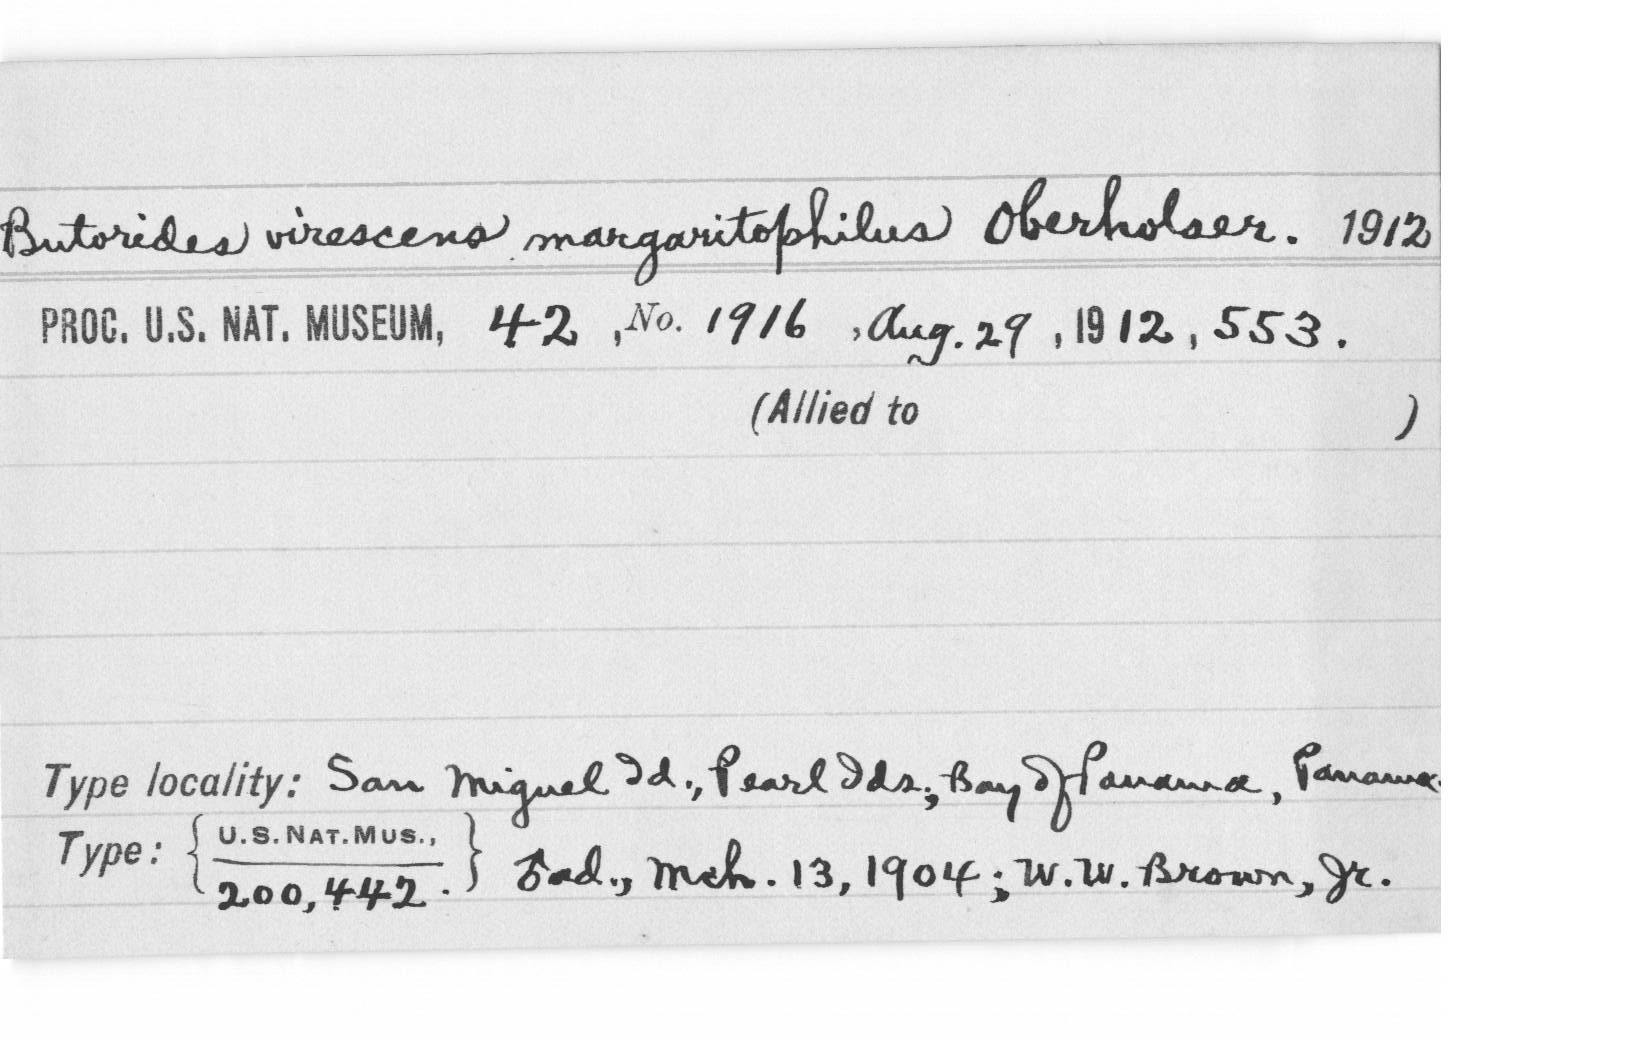 Butorides virescens margaritophilus Oberholser. 1912
PROC. U.S. NAT. MUSEUM, 42, No. 1916, Aug. 29, 1912, 553.
(Allied to )
Type locality: San Miguel Id., Pearl Ids., Bay of Panama, Panama.
Type: { U.S. NAT. MUS., 200,442. } ♂ ad., Mch. 13, 1904; W. W. Brown, Jr.